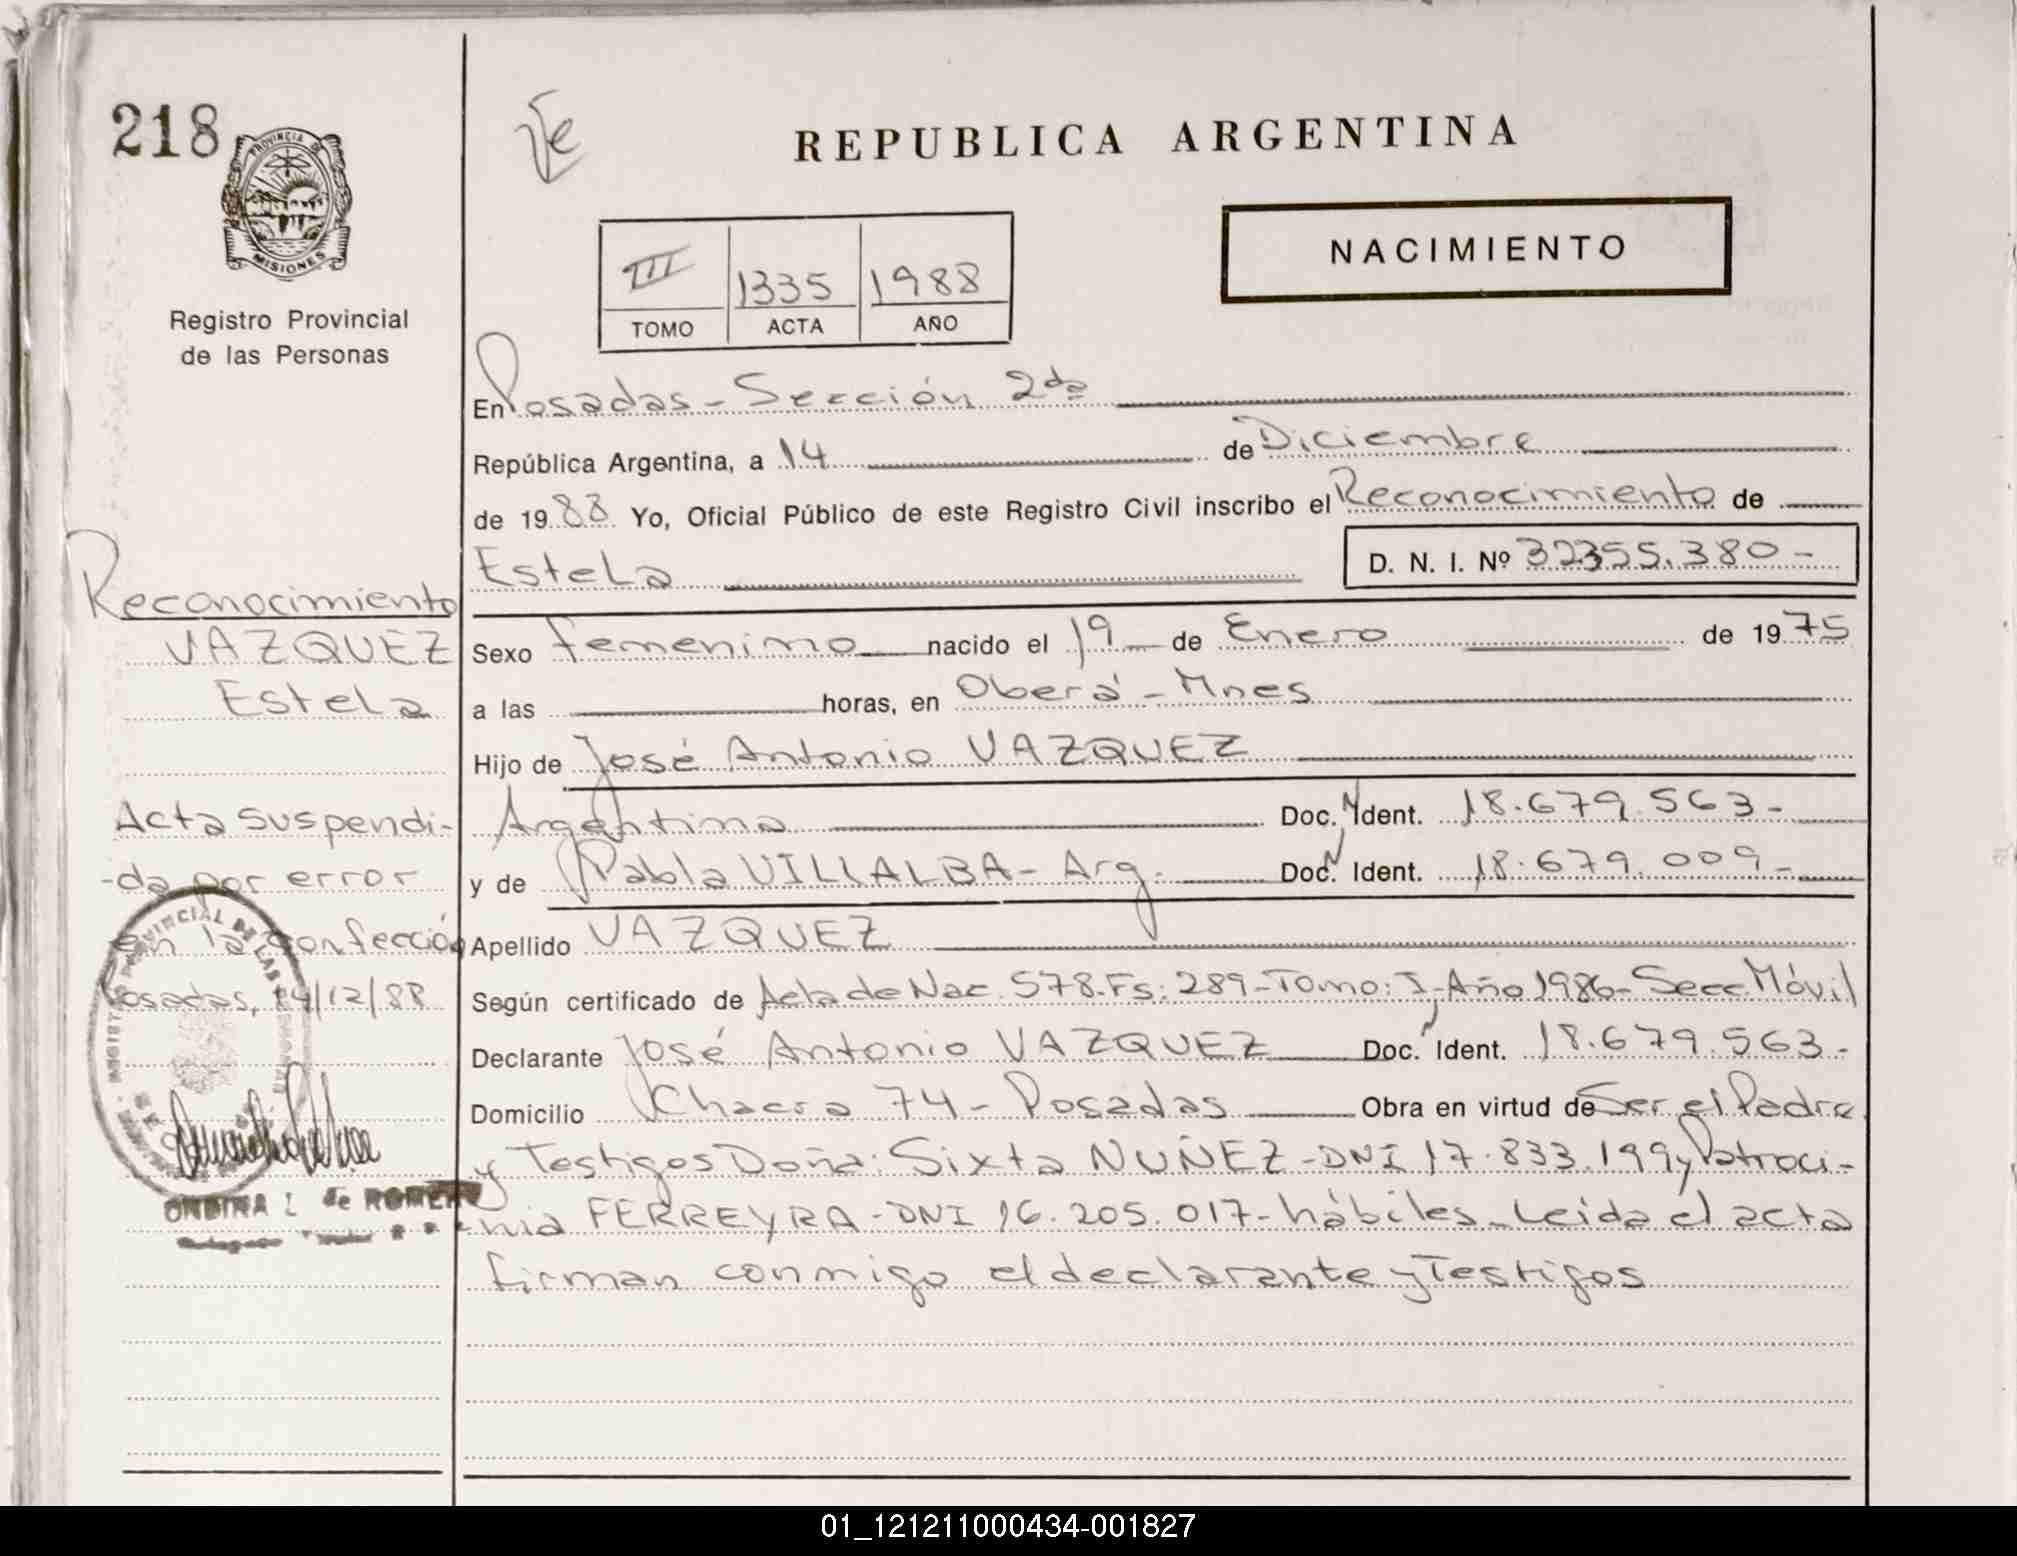 218
PROVINCIA DE
MISIONES
Registro Provincial
de las Personas
REPUBLICA ARGENTINA
NACIMIENTO
III 1335 1988
TOMO ACTA AÑO
En Posadas - Sección 2da
República Argentina, a 14 de Diciembre
de 1988 Yo, Oficial Público de este Registro Civil inscribo el Reconocimiento de
Estela D. N. I. Nº 32355.380-
Sexo femenino nacido el 19 de Enero de 1975
a las horas, en Oberá - Mnes
Hijo de José Antonio VAZQUEZ
Argentino Doc. N Ident. 18.679.563-
y de Pabla VILLALBA - Arg. Doc. N Ident. 18.679.009-
Apellido VAZQUEZ
Según certificado de Acta de Nac. 578.Fs: 289-Tomo: I, Año 1986-Secc. Móvil
Declarante José Antonio VAZQUEZ Doc. N Ident. 18.679.563-
Domicilio Chacra 74 - Posadas Obra en virtud de Ser el Padre
y Testigos Doña: Sixta NUÑEZ - DNI 17.833.199 y Patroci-
nia FERREYRA - DNI 16.205.017- hábiles - Leída el acta
firman conmigo el declarante y Testigos
Reconocimiento
VAZQUEZ
Estela
Acta suspendi-
-da por error
en la confección
Posadas, 14/12/88
PROVINCIAL DE LAS
ONDINA L de ROMERO
01_121211000434-001827